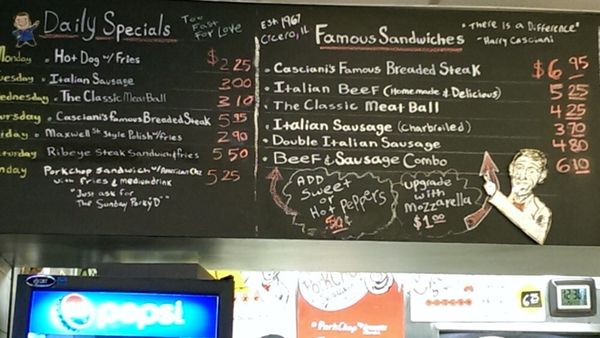 Daily Specials
Too Fast For Love
Monday • Hot Dog w/ Fries $2.25
Tuesday • Italian Sausage 3.00
Wednesday • The Classic Meat Ball 3.10
Thursday • Casciani's Famous Breaded Steak 5.95
Friday • Maxwell St Style Polish w/ Fries 2.90
Saturday Ribeye Steak Sandwich Fries 5.50
Sunday Porkchop Sandwich w/ American Chz 5.25
with fries & medium drink
"Just ask for
The Sunday Porky D"
Est. 1967
Cicero, IL
Famous Sandwiches
"There is a Difference"
-Harry Casciani
• Casciani's Famous Breaded Steak $6.95
• Italian Beef (Homemade & Delicious) 5.25
• The Classic Meat Ball 4.25
• Italian Sausage (Charbroiled) 3.70
• Double Italian Sausage 4.80
• Beef & Sausage Combo 6.10
ADD
Sweet
or
Hot Peppers
50¢
Upgrade
with
Mozzarella
$1.00
pepsi
PorkChop